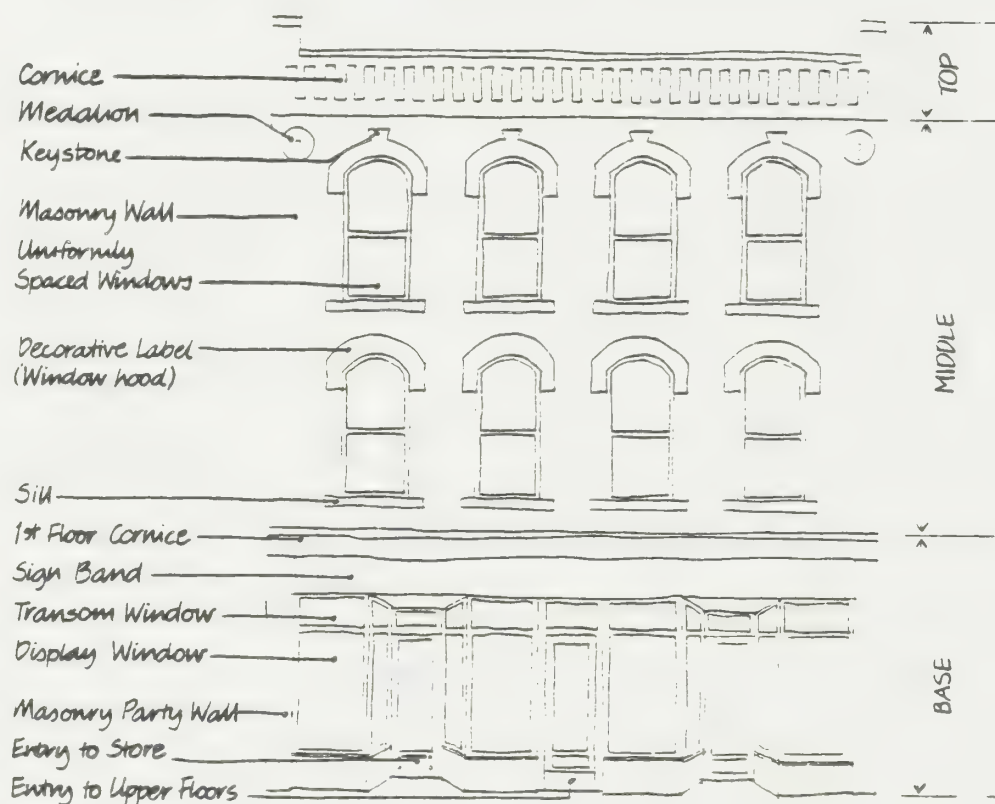 Cornice
Medalion
Keystone
Masonry Wall
Uniformly
Spaced Windows
Decorative Label
(Window hood)
Sill
1st Floor Cornice
Sign Band
Transom Window
Display Window
Masonry Party Wall
Entry to Store
Entry to Upper Floors
TOP
MIDDLE
BASE